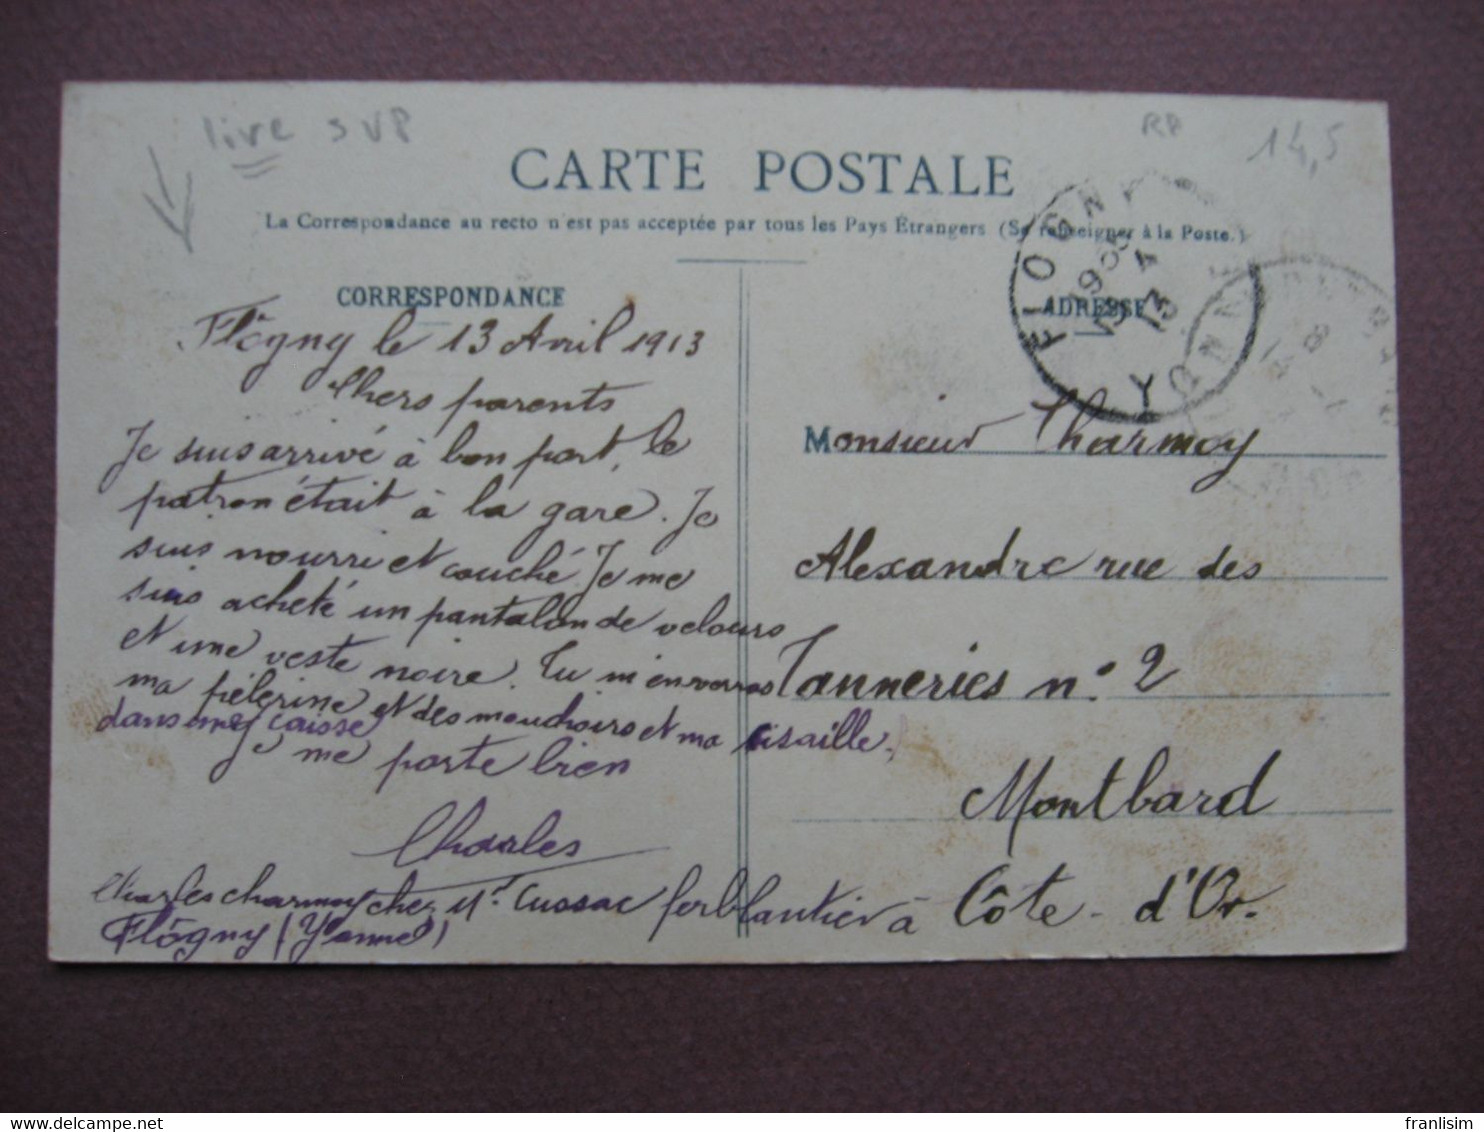 live SVP
RP
14,5
CARTE POSTALE
La Correspondance au recto n'est pas acceptée par tous les Pays Étrangers (Se renseigner à la Poste.)
CORRESPONDANCE
Flôgny le 13 Avril 1913
Chers parents
Je suis arrivé à bon port, le
patron était à la gare. Je
suis nourri et couché. Je me
suis acheté un pantalon de velours
et une veste noire. Tu m'enverras
ma pélerine et des mouchoirs et ma cisaille.
dans ma caisse
Je me porte bien
Charles
Charles Charmoy chez Mr. Cussac ferblantier à
Flôgny (Yonne)
ADRESSE
Monsieur Charmoy
Alexandre rue des
Tanneries n° 2
Montbard
Côte-d'Or.
FLOGNY
YONNE
13
4
13
franlisim
delcampe.net